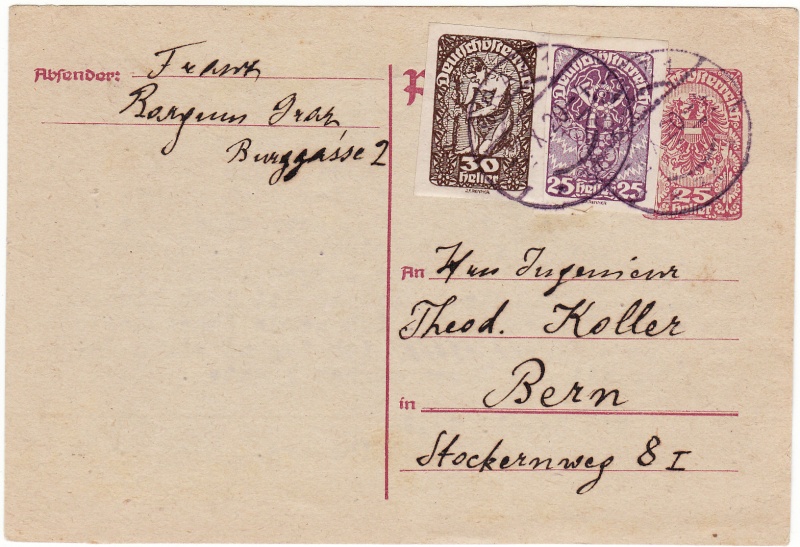 Absender: Frank
Bargum Graz
Burggasse 2
Deutschösterreich
30
heller
Deutschösterreich
25 heller 25
25
heller
An Herrn Ingenieur
Theod. Koller
in Bern
Stockernweg 8 I